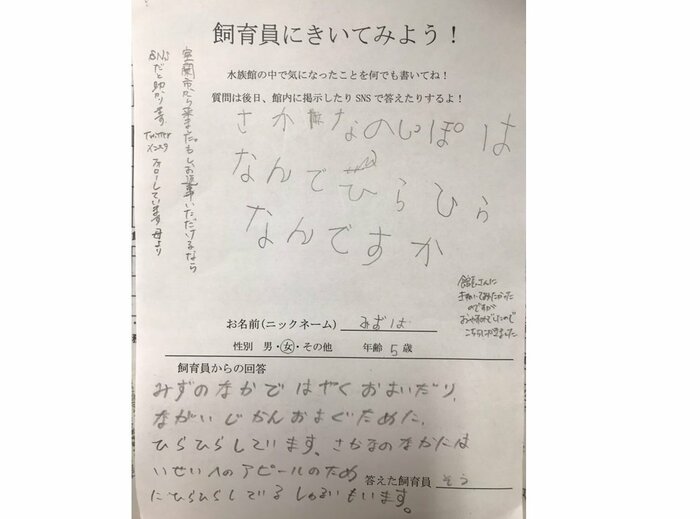 飼育員にきいてみよう！
水族館の中で気になったことを何でも書いてね！
質問は後日、館内に掲示したりSNSで答えたりするよ！
室蘭市から来ました。もしお返事いただけるなら
SNSだと助かります。
Twitter
インスタ
フォローしています 母より
さかなのしっぽは
なんでひらひら
なんですか
館長さんに
きいてみたかった
のですが
おやすみでしたので
こちらに書きました
お名前(ニックネーム) みずは
性別 男・女・その他 年齢 5 歳
飼育員からの回答
みずのなかで はやく およいだり、
ながい じかん およぐために、
ひらひらしています。さかなのなかには
いせいへのアピールのため
にひらひらしている しゅるいもいます。
答えた飼育員 そう